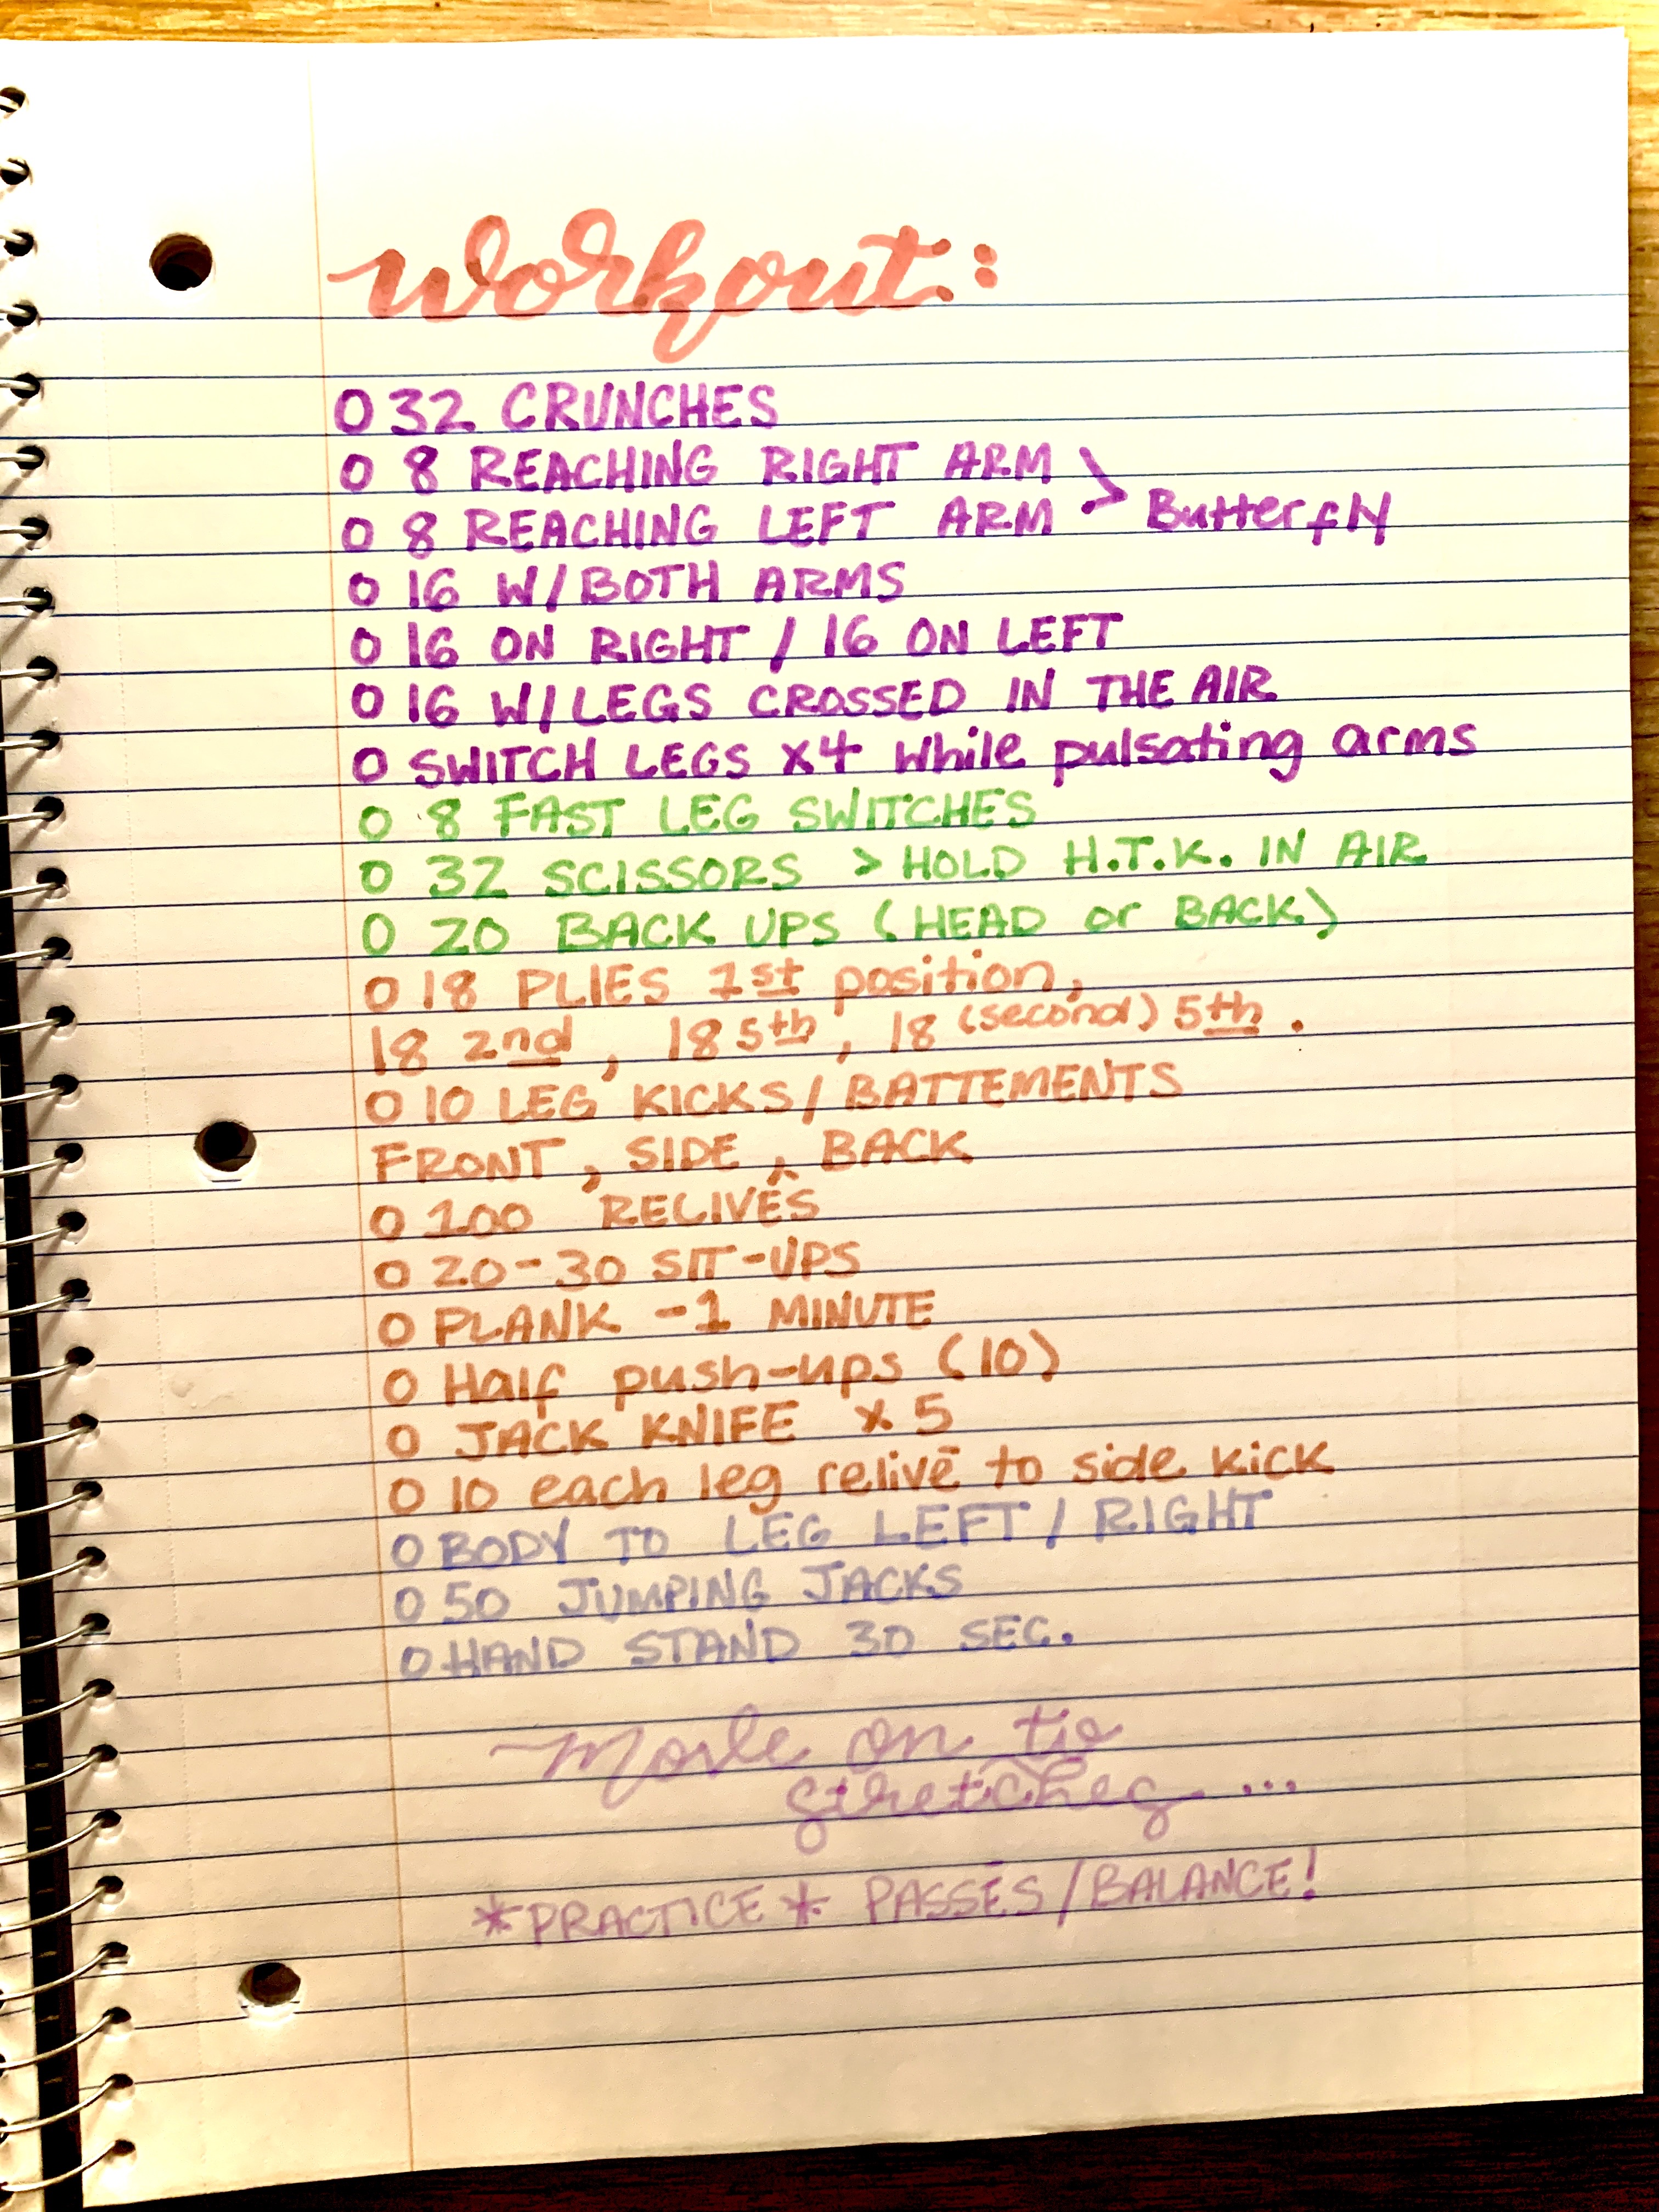 workout:
O 32 CRUNCHES
O 8 REACHING RIGHT ARM
O 8 REACHING LEFT ARM > Butterfly
O 16 W/BOTH ARMS
O 16 ON RIGHT / 16 ON LEFT
O 16 W/LEGS CROSSED IN THE AIR
O SWITCH LEGS X4 while pulsating arms
O 8 FAST LEG SWITCHES
O 32 SCISSORS > HOLD H.T.K. IN AIR
O 20 BACK UPS (HEAD or BACK)
O 18 PLIES 1st position,
18 2nd, 18 5th, 18 (second) 5th.
O 10 LEG KICKS/BATTEMENTS
FRONT, SIDE, BACK
O 100 RELIVĒS
O 20-30 SIT-UPS
O PLANK -1 MINUTE
O Half push-ups (10)
O JACK KNIFE x 5
O 10 each leg relivē to side kick
O BODY TO LEG LEFT/RIGHT
O 50 JUMPING JACKS
O HAND STAND 30 SEC.
on
stretches...
*PRACTICE* PASSĒS/BALANCE!